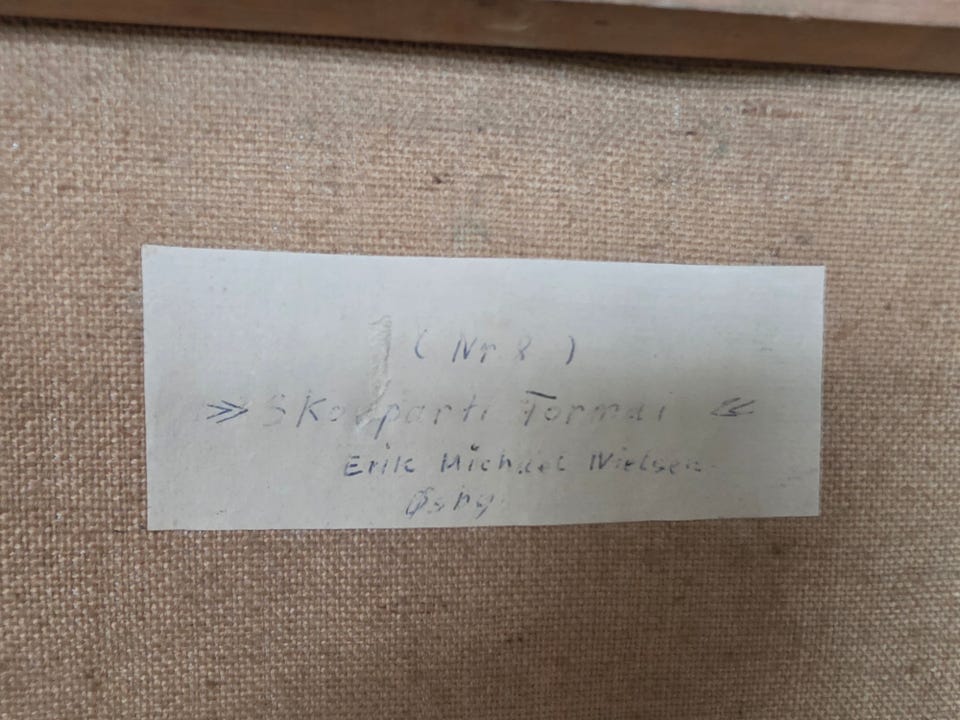 ( Nr 8 )
» Skovparti Formai «
Erik Michael Nielsen
Øsby